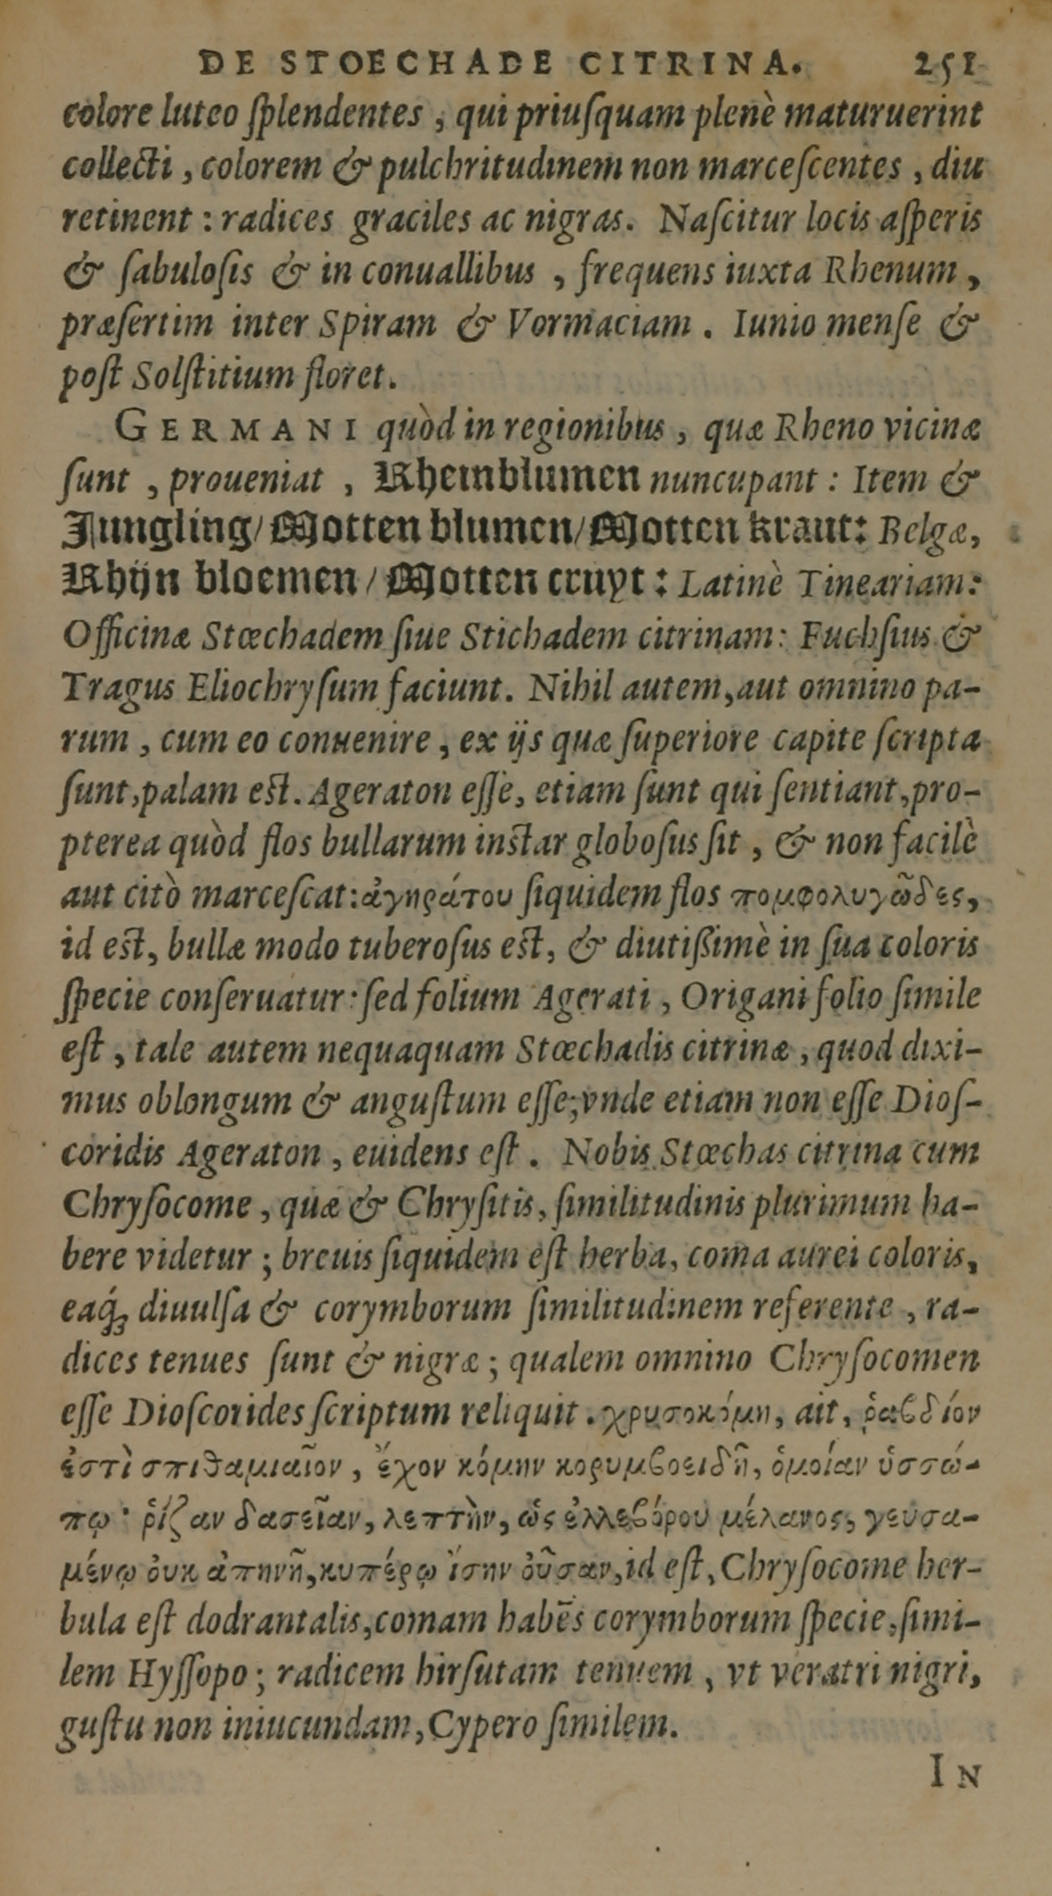 DE STOECHADE CITRINA. 251
colore luteo ſplendentes, qui priuſquam plenè maturuerint
collecti, colorem & pulchritudinem non marceſcentes, diu
retinent: radices graciles ac nigras. Naſcitur locis aſperis
& ſabuloſis & in conuallibus, frequens iuxta Rhenum,
præſertim inter Spiram & Vormaciam. Iunio menſe &
poſt Solſtitium floret.
GERMANI quòd in regionibus, quæ Rheno vicinæ
ſunt, proueniat, Rheinblumen nuncupant: Item &
Jungling/ Motten blumen/ Motten kraut: Belgæ,
Rhijn bloemen/ Motten cruyt: Latinè Tineariam:
Officinæ Stœchadem ſiue Stichadem citrinam: Fuchſius &
Tragus Eliochryſum faciunt. Nihil autem, aut omnino pa-
rum, cum eo conuenire, ex ijs quæ ſuperiore capite ſcripta
ſunt, palam eſt. Ageraton eſſe, etiam ſunt qui ſentiant, pro-
pterea quòd flos bullarum inſtar globoſus ſit, & non facilè
aut citò marceſcat: ἀγηράτου ſiquidem flos πομφολυγῶδες,
id eſt, bullæ modo tuberoſus eſt, & diutißimè in ſua coloris
ſpecie conſeruatur: ſed folium Agerati, Origani folio ſimile
eſt, tale autem nequaquam Stœchadis citrinæ, quod dixi-
mus oblongum & anguſtum eſſe; vnde etiam non eſſe Dioſ-
coridis Ageraton, euidens eſt. Nobis Stœchas citrina cum
Chryſocome, quæ & Chryſitis, ſimilitudinis plurimum ha-
bere videtur; breuis ſiquidem eſt herba, coma aurei coloris,
eaq́ꝫ diuulſa & corymborum ſimilitudinem referente, ra-
dices tenues ſunt & nigræ; qualem omnino Chryſocomen
eſſe Dioſcorides ſcriptum reliquit. χρυσοκόμη, ait, ῥαβδίον
ἐστὶ σπιθαμιαῖον, ἔχον κόμην κορυμβοειδῆ, ὁμοίαν ὑσσώ-
πῳ· ῥίζαν δασεῖαν, λεπτὴν, ὡς ἐλλεβόρου μέλανος, γευσα-
μένῳ ὀυκ ἀπηνῆ, κυπέρῳ ἴσην ὀῦσαν, id eſt, Chryſocome her-
bula eſt dodrantalis, comam habẽs corymborum ſpecie, ſimi-
lem Hyſſopo; radicem hirſutam tenuem, vt veratri nigri,
guſtu non iniucundam, Cypero ſimilem.
IN